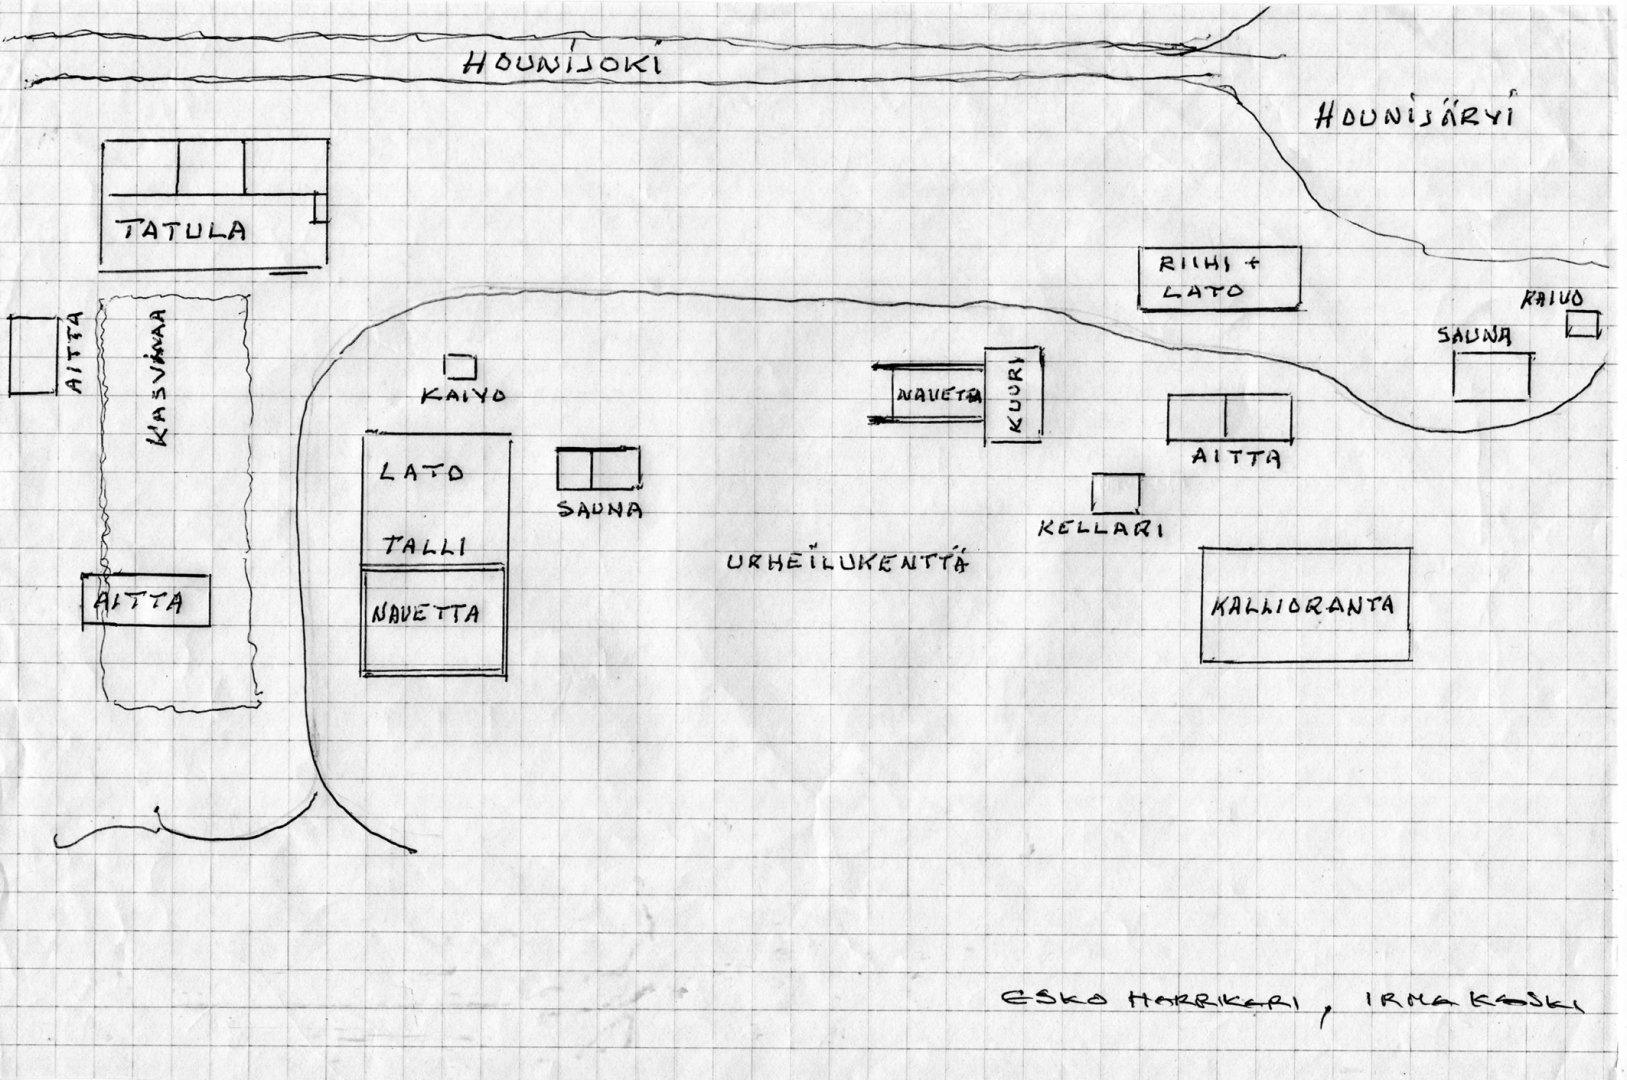 HOUNIJOKI
HOUNIJÄRVI
TATULA
RIIHI +
LATO
KAIVO
SAUNA
AITTA
KASVIMAA
KAIVO
NAVETTA
KUURI
LATO
SAUNA
AITTA
KELLARI
TALLI
URHEILUKENTTÄ
AITTA
NAVETTA
KALLIORANTA
ESKO HARRIKARI, IRMA KOSKI